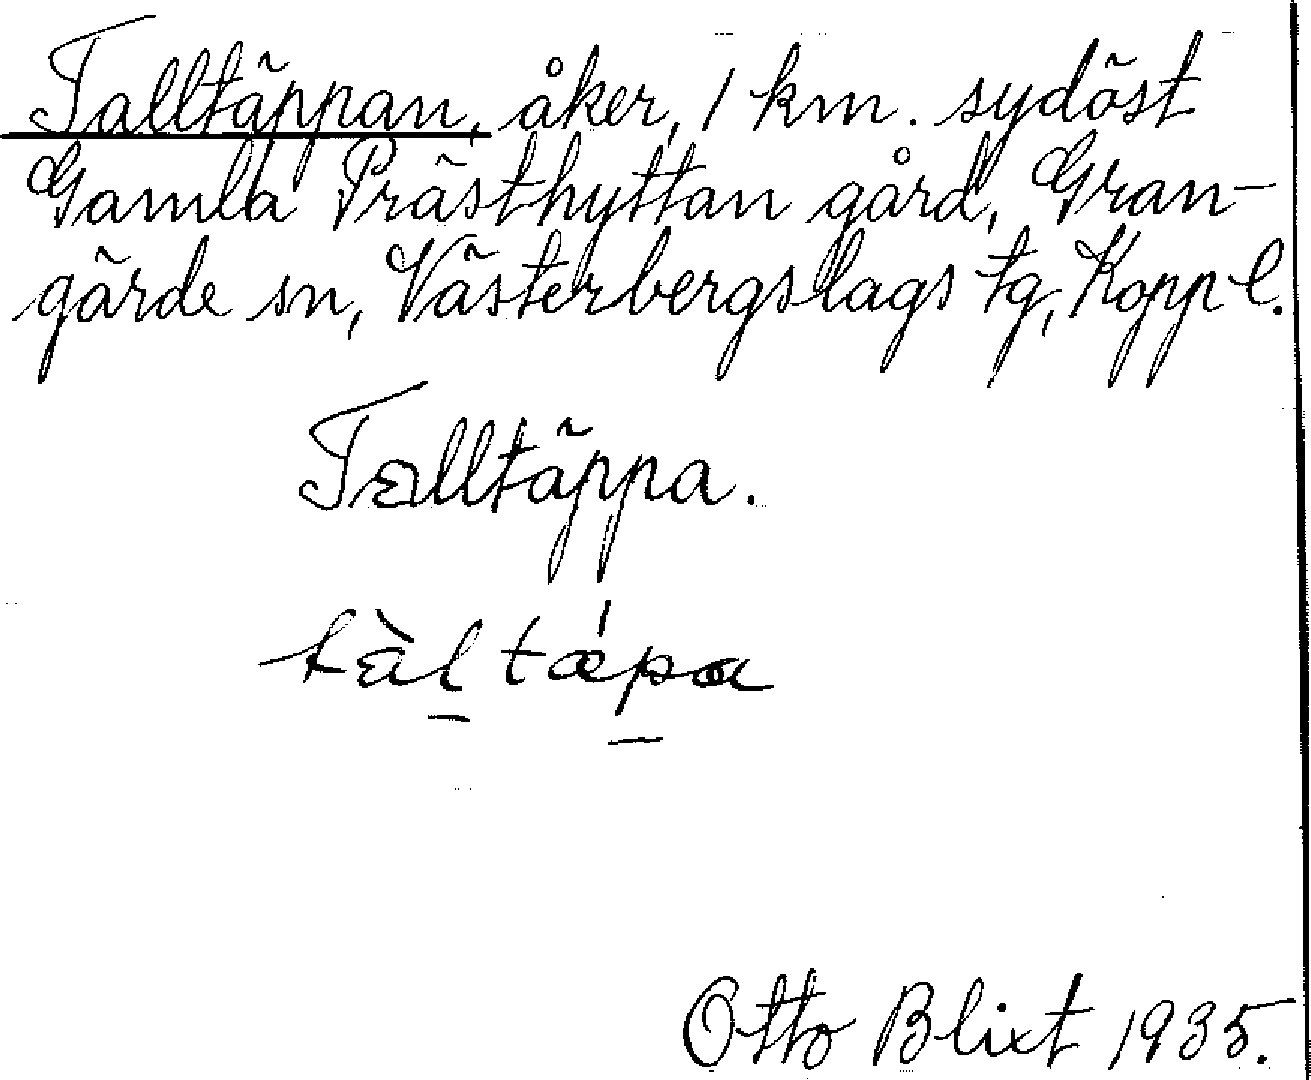 Talltäppan, åker, 1 km. sydöst
Gamla Prästhyttan gård, Gran-
gärde sn, Västerbergslags tg, Kopp l.
Talltäppa.
tàl tǽpa
Otto Blixt 1935.